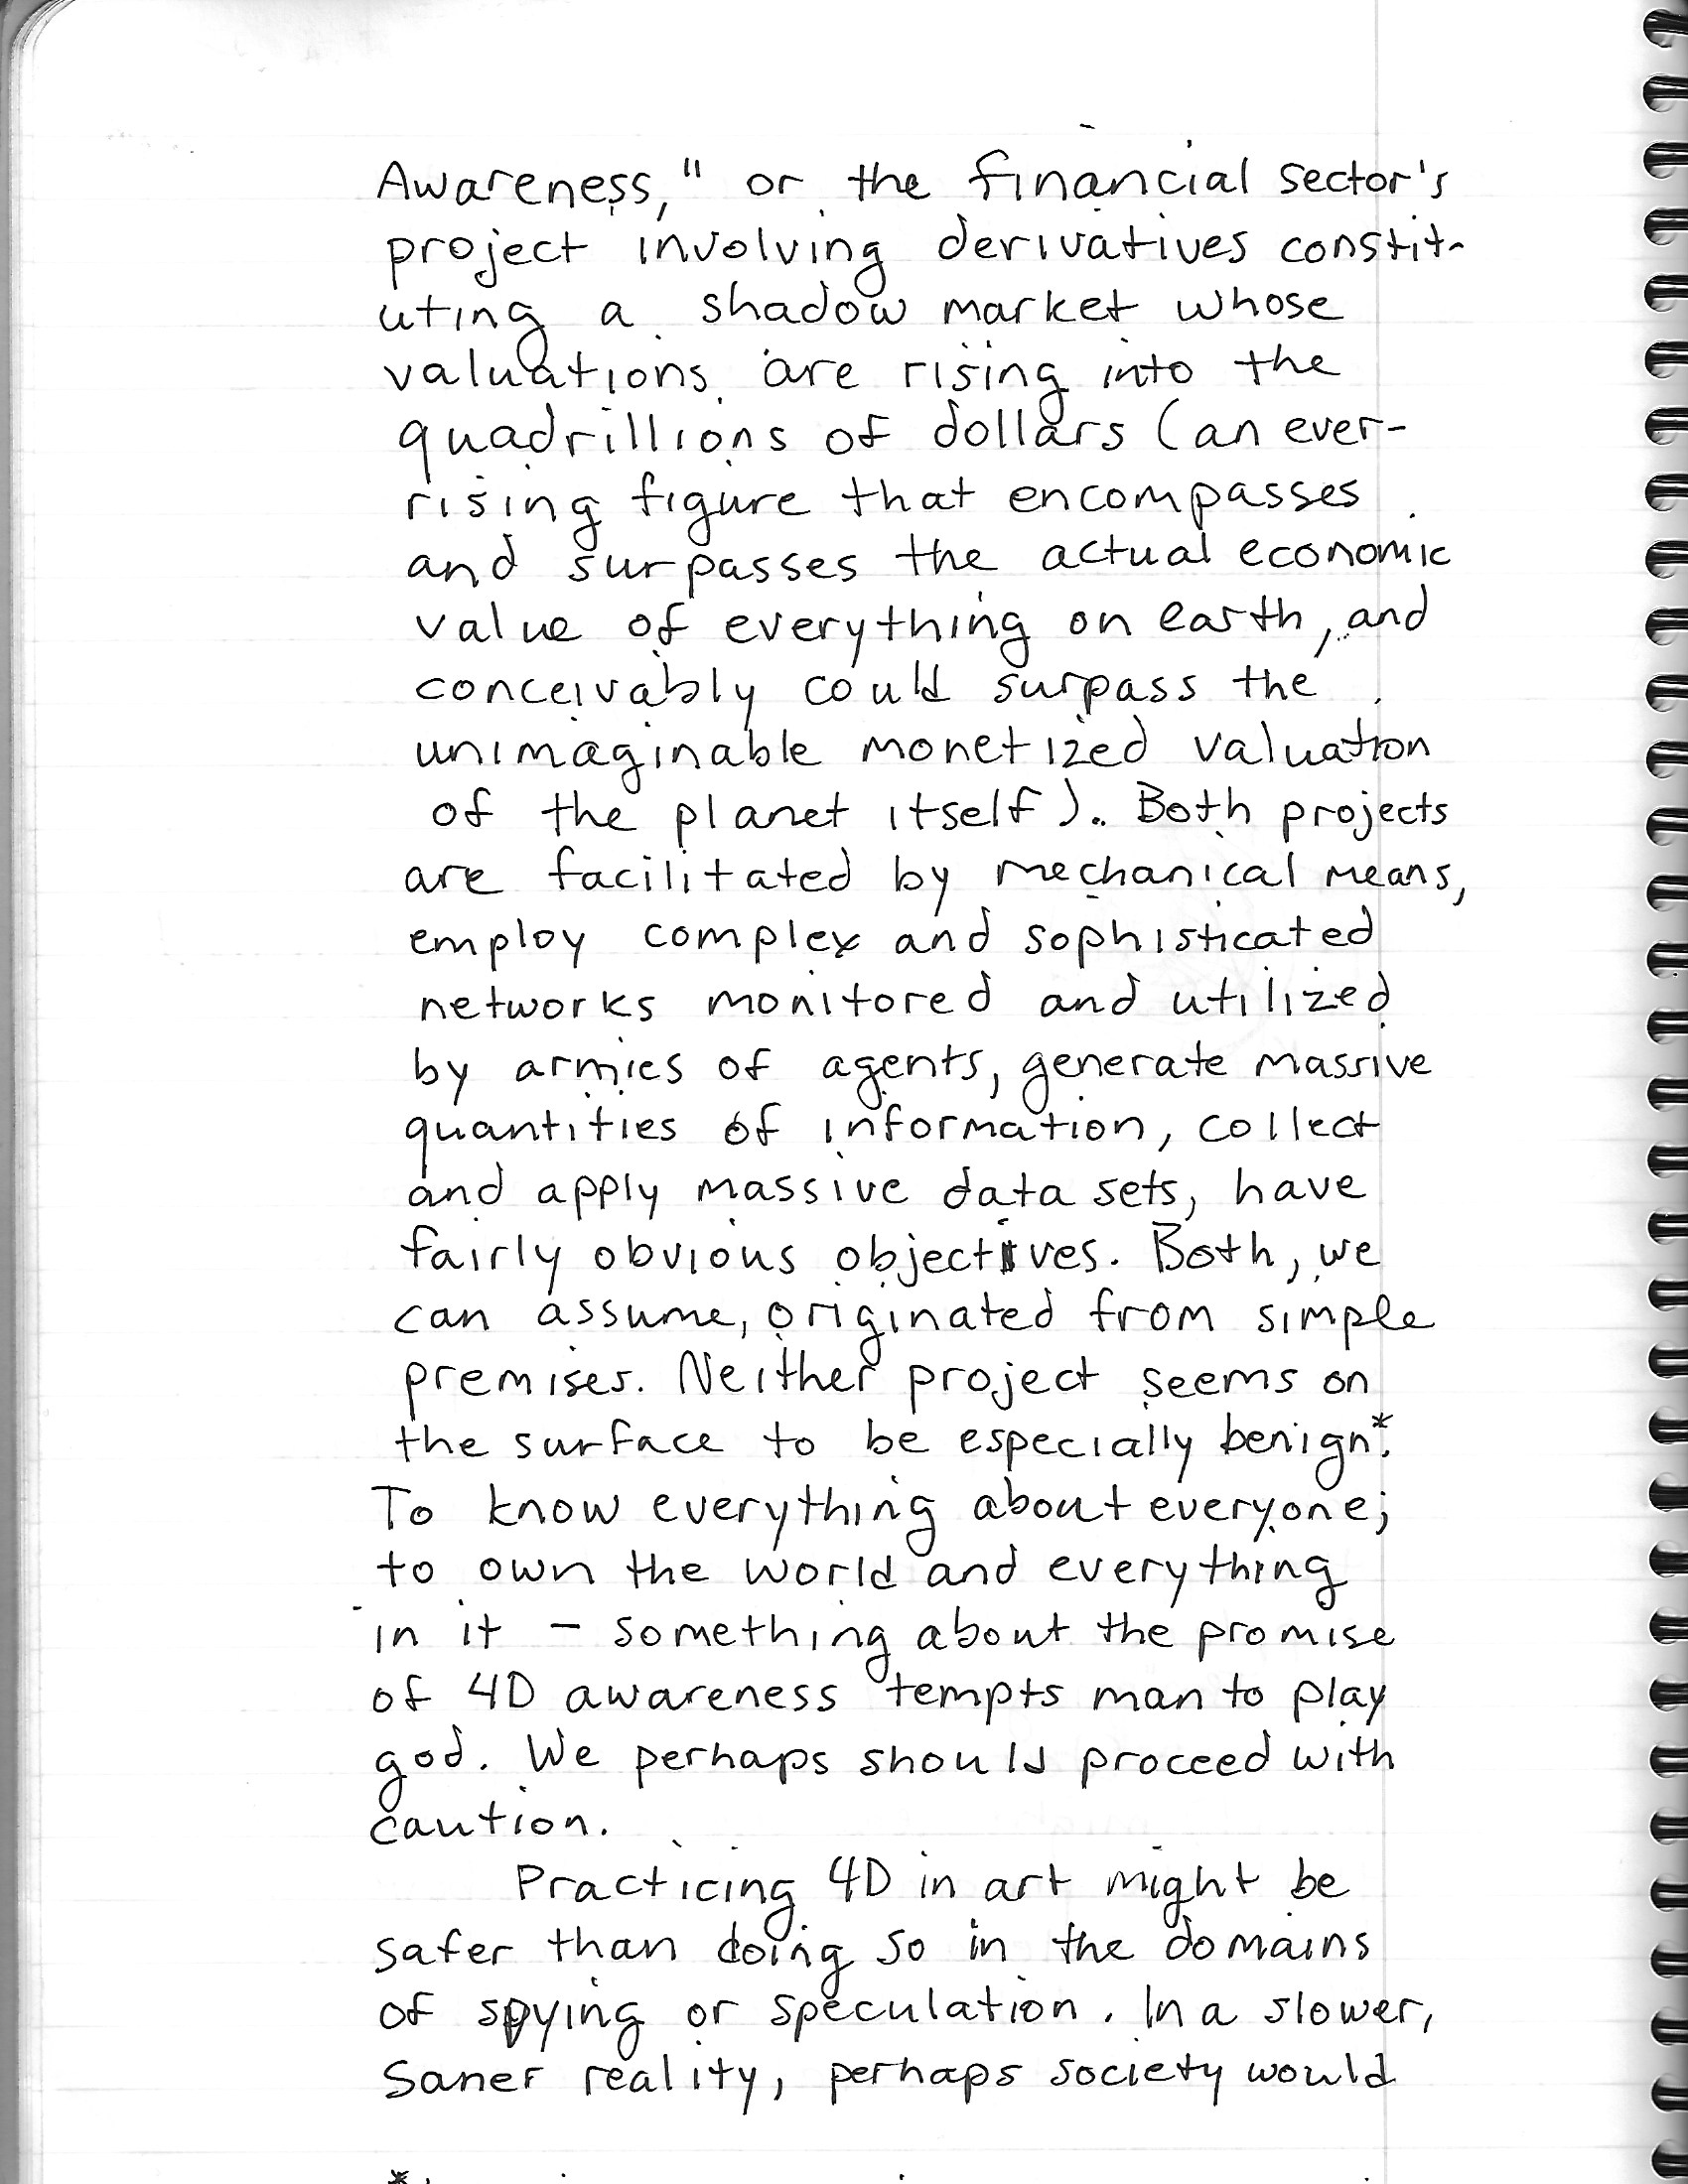 Awareness," or the financial sector's
project involving derivatives constit-
uting a shadow market whose
valuations are rising into the
quadrillions of dollars (an ever-
rising figure that encompasses
and surpasses the actual economic
value of everything on earth, and
conceivably could surpass the
unimaginable monetized valuation
of the planet itself). Both projects
are facilitated by mechanical means,
employ complex and sophisticated
networks monitored and utilized
by armies of agents, generate massive
quantities of information, collect
and apply massive data sets, have
fairly obvious objectives. Both, we
can assume, originated from simple
premises. Neither project seems on
the surface to be especially benign*.
To know everything about everyone;
to own the world and everything
in it – something about the promise
of 4D awareness tempts man to play
god. We perhaps should proceed with
caution.
Practicing 4D in art might be
safer than doing so in the domains
of spying or speculation. In a slower,
saner reality, perhaps society would
*